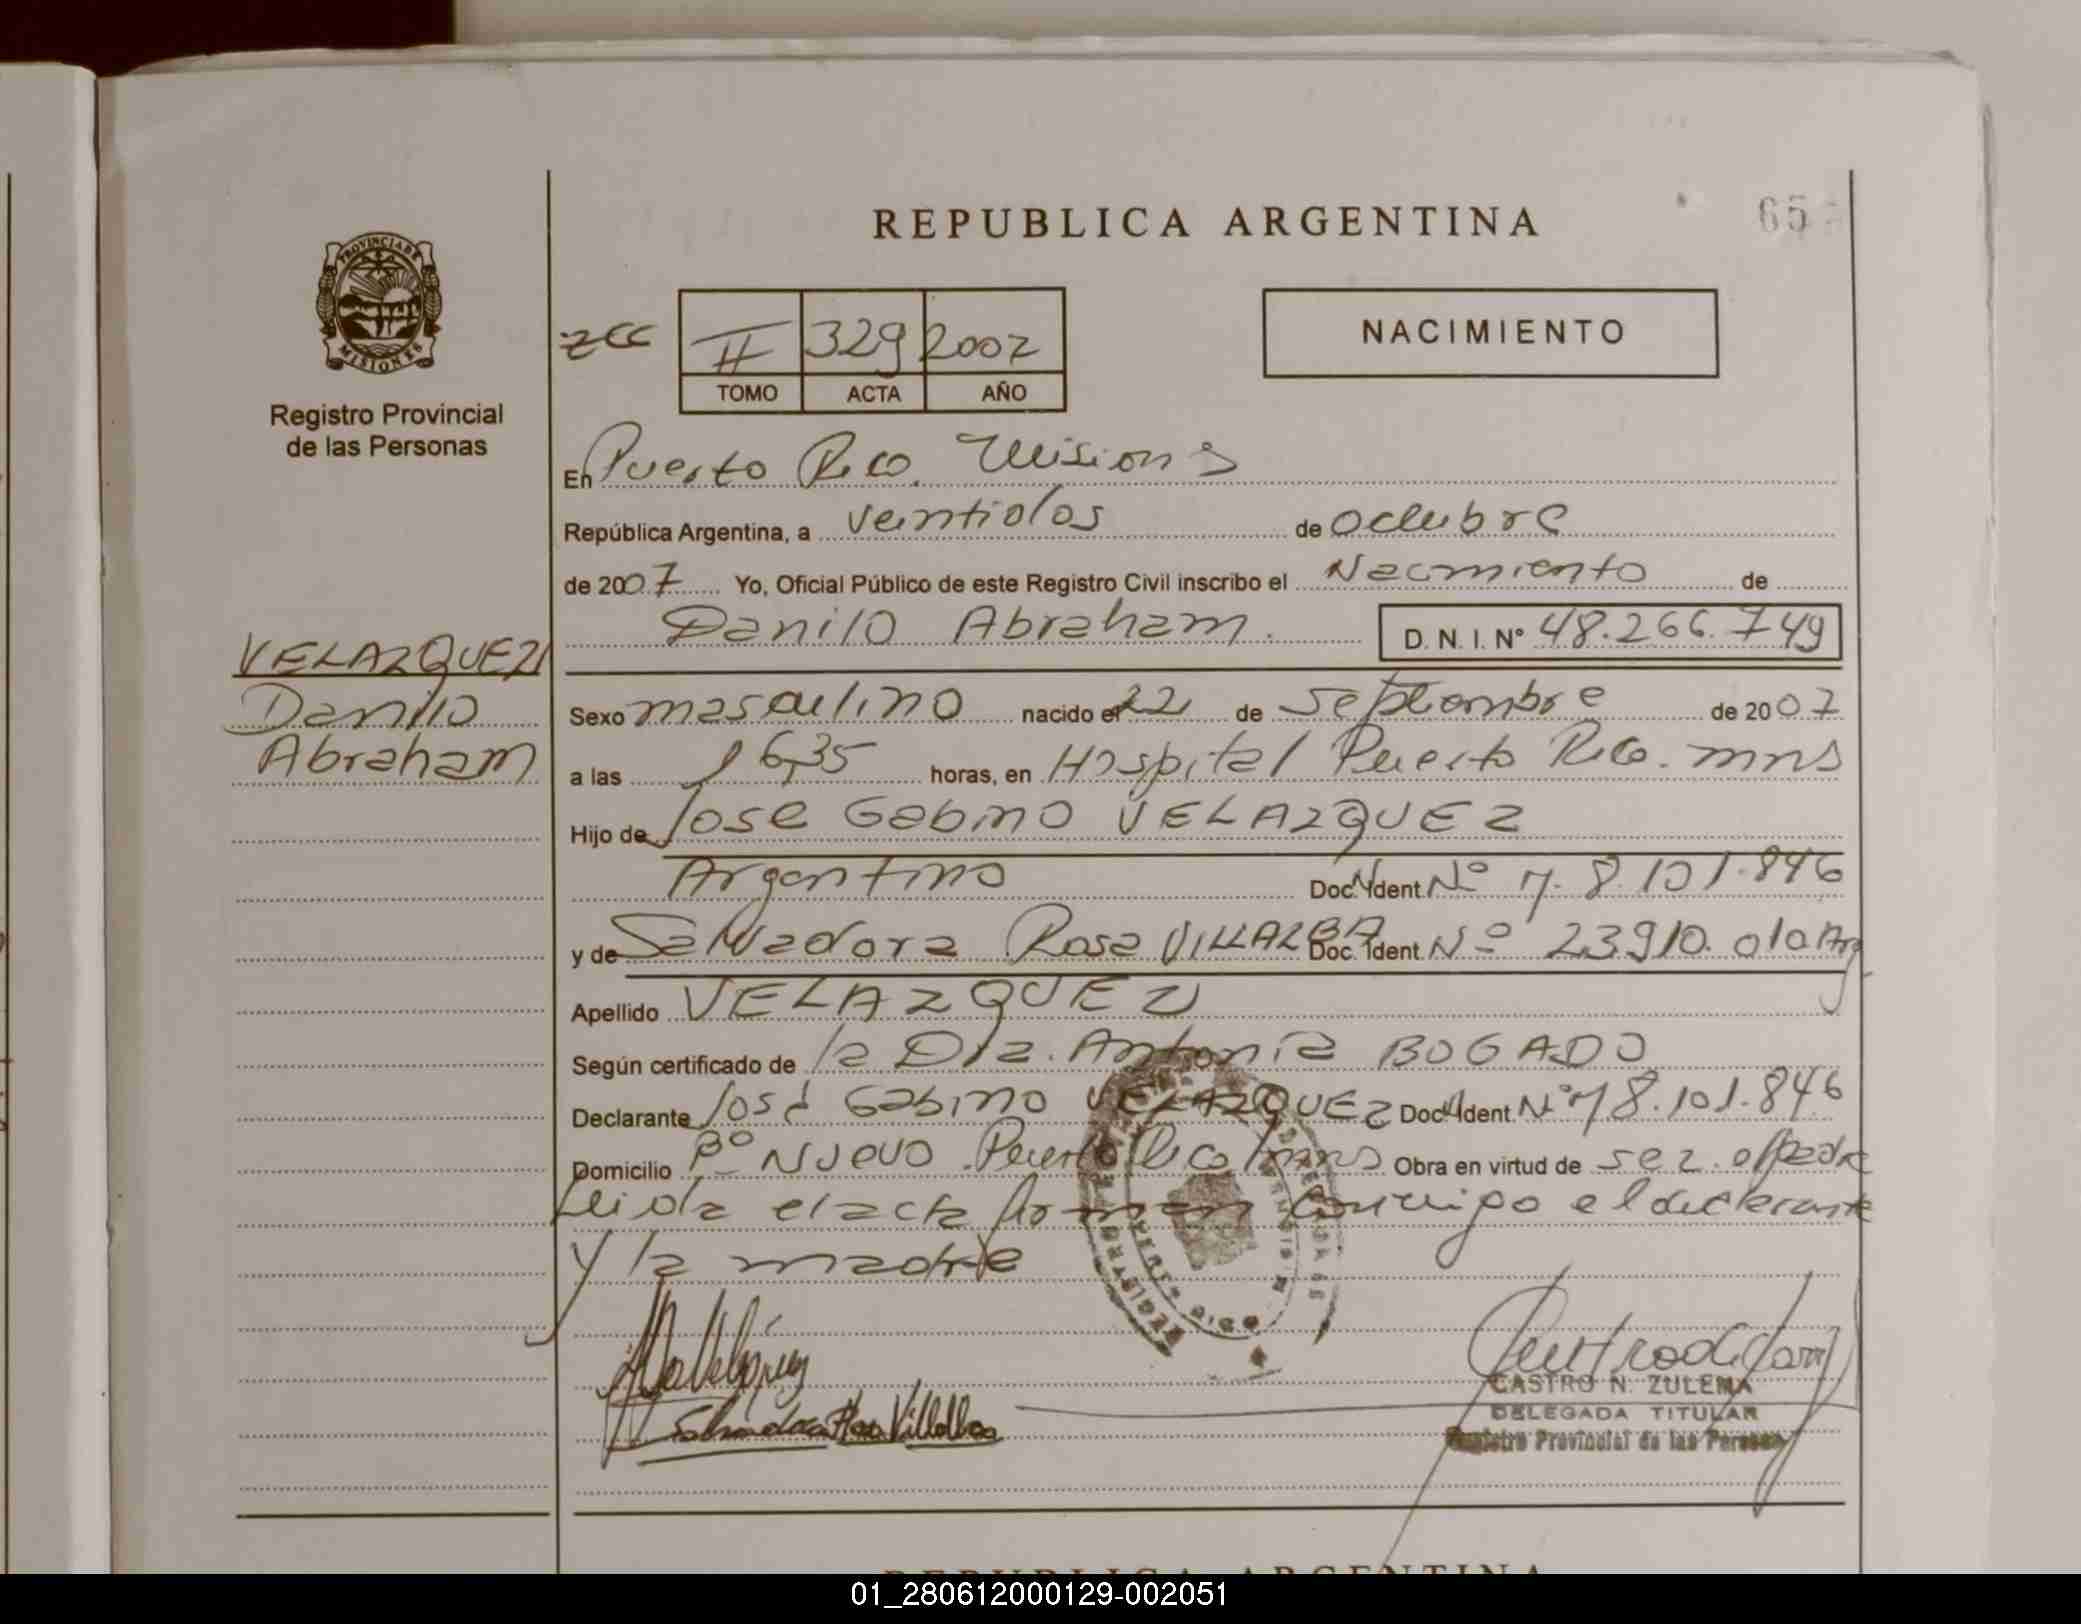 REPUBLICA ARGENTINA
65
PROVINCIA DE
MISIONES
Registro Provincial
de las Personas
zcc
II 329 2007
TOMO ACTA AÑO
NACIMIENTO
En Puerto Rico. Misiones
República Argentina, a veintidos de octubre
de 2007 Yo, Oficial Público de este Registro Civil inscribo el Nacimiento de
Danilo Abraham. D.N.I. Nº 48.266.749
VELAZQUEZ
Danilo
Abraham
Sexo masculino nacido el 22 de septiembre de 2007
a las 16,35 horas, en Hospital Puerto Rico. mns
Hijo de José Gabino VELAZQUEZ
Argentino Doc. Ident. Nº M. 8.101.846
y de Salvadora Rosa VILLALBA Doc. Ident. Nº 23910.010 Arg
Apellido VELAZQUEZ
Según certificado de la Dra. Antonia BOGADO
Declarante José Gabino VELAZQUEZ Doc. Ident. Nº M 8.101.846
Domicilio Bº Nuevo. Puerto Rico mns Obra en virtud de ser el padre
Leida el acta firman conmigo el declarante
y la madre
Salvadora Rosa Villalba
CASTRO N. ZULEMA
DELEGADA TITULAR
Registro Provincial de las Personas
REPUBLICA ARGENTINA
01_280612000129-002051